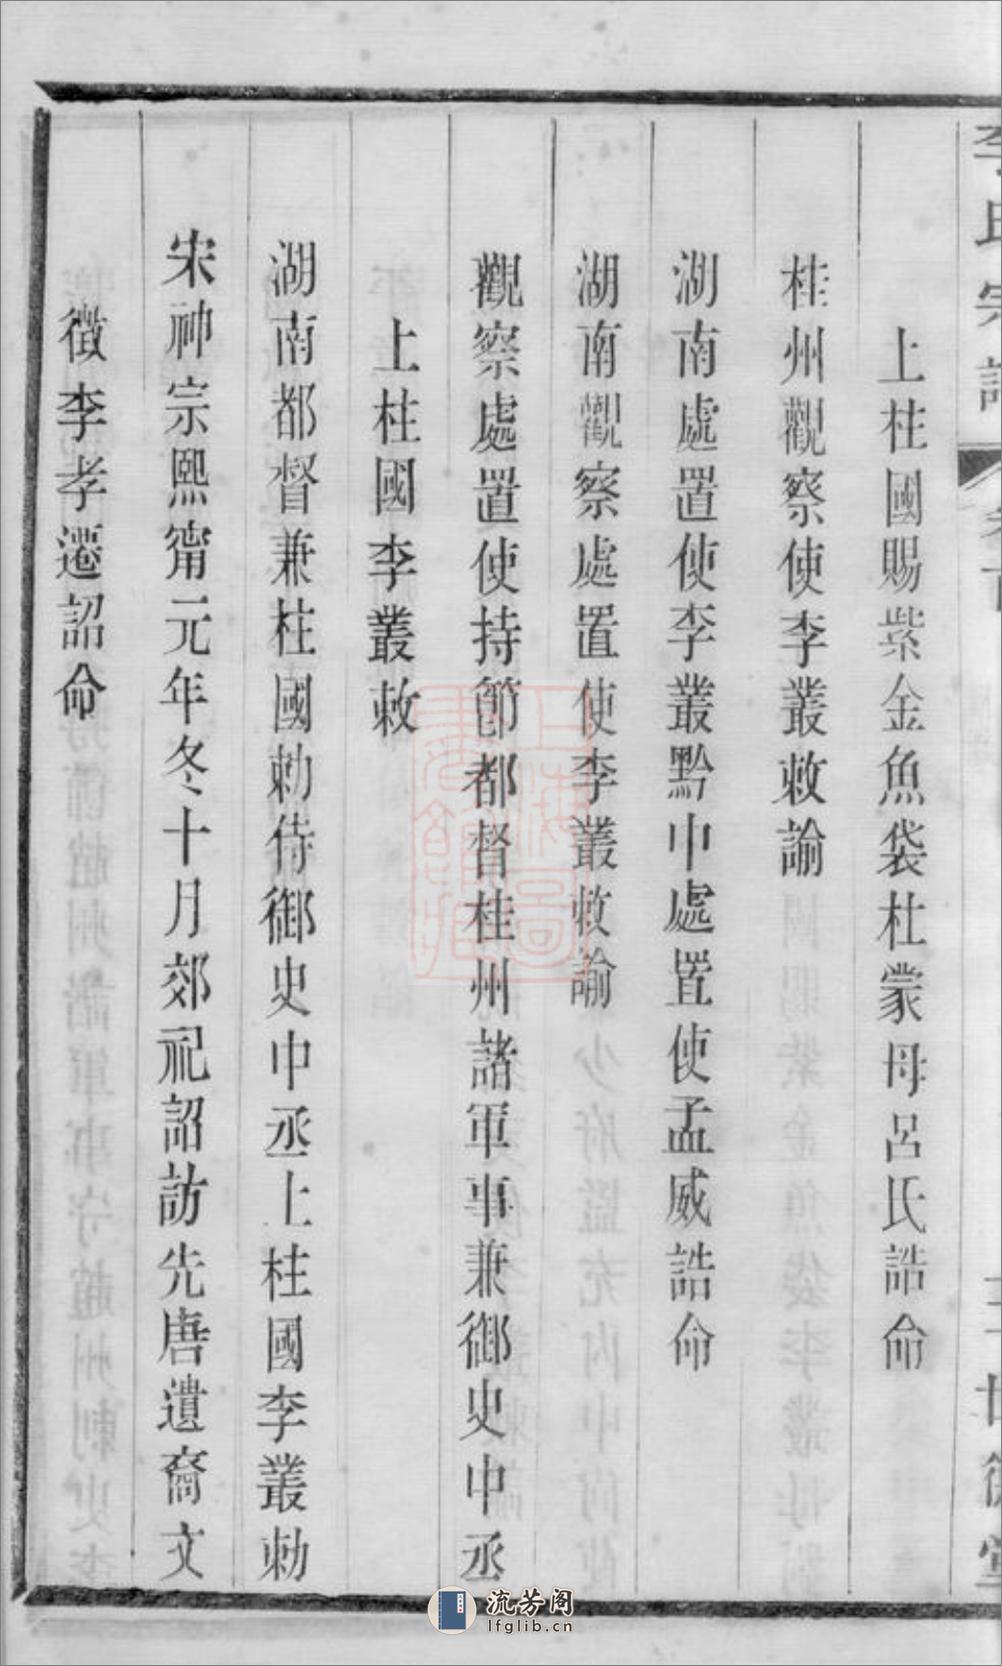 李氏宗譜
上柱國賜紫金魚袋杜蒙母呂氏誥命
桂州觀察使李叢敕諭
湖南處置使李叢黔中處置使孟威誥命
湖南觀察處置使李叢敕諭
觀察處置使持節都督桂州諸軍事兼御史中丞
上柱國李叢敕
湖南都督兼柱國勅侍御史中丞上柱國李叢勅
宋神宗熙甯元年冬十月郊祀詔訪先唐遺裔文
徵李孝遷詔命
上海圖書館藏
流芳阁
lfglib.cn